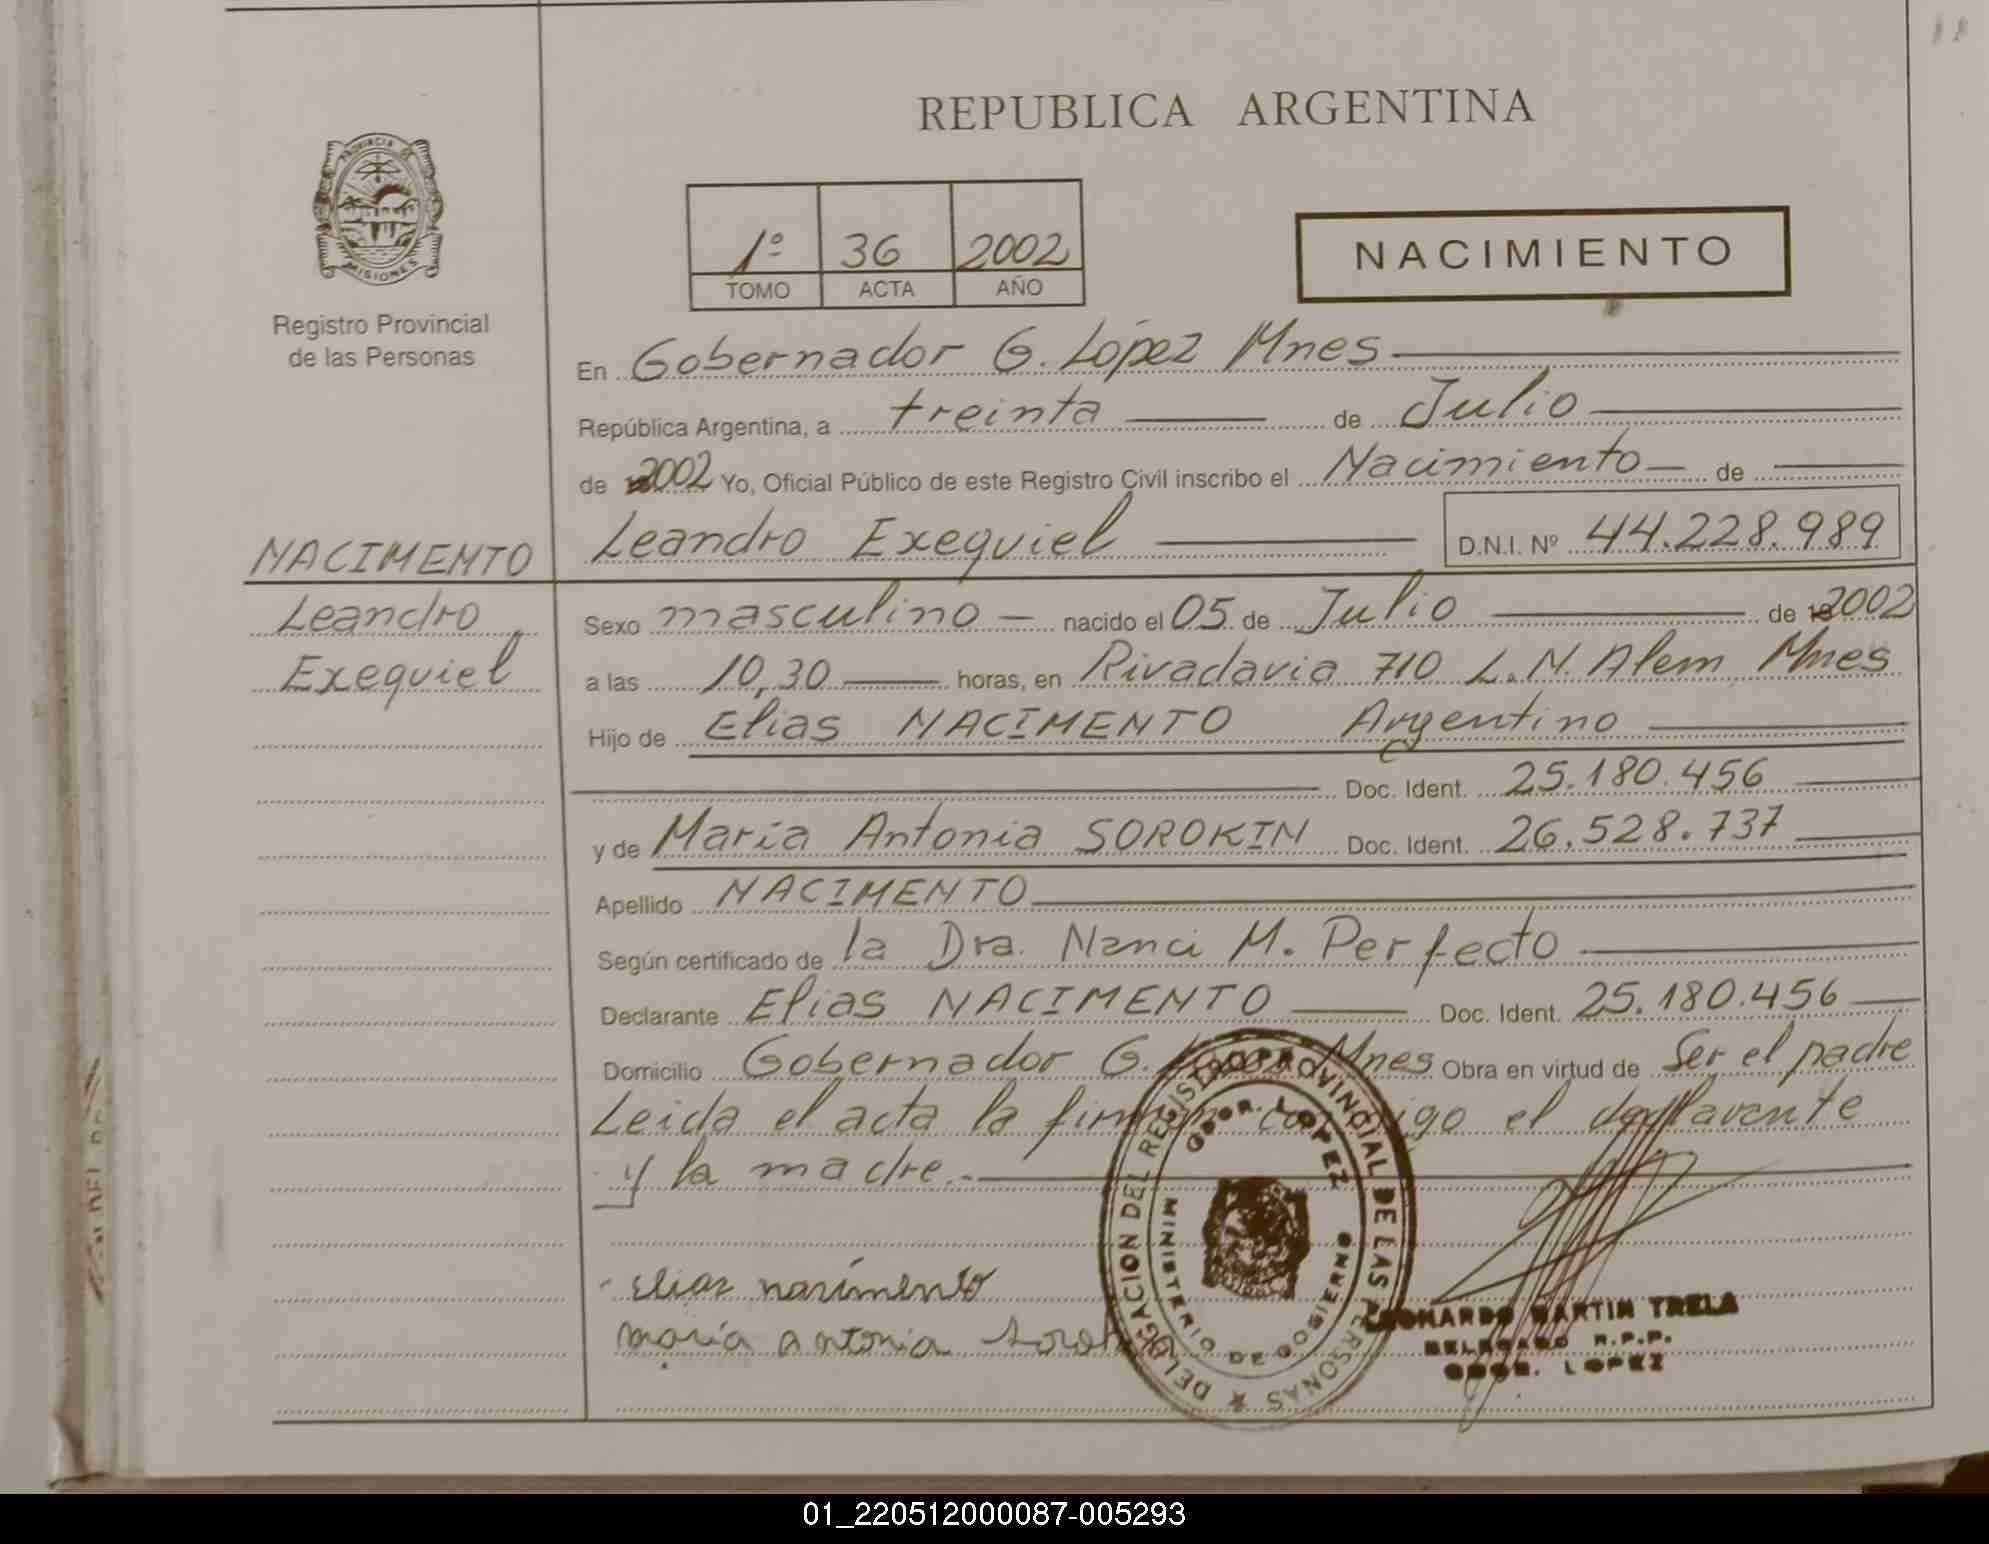 REPUBLICA ARGENTINA
PROVINCIA DE
MISIONES
Registro Provincial
de las Personas
1º 36 2002
TOMO ACTA AÑO
NACIMIENTO
En Gobernador G. López Mnes
República Argentina, a treinta de Julio
de 2002 Yo, Oficial Público de este Registro Civil inscribo el Nacimiento de
Leandro Exequiel D.N.I. Nº 44.228.989
NACIMENTO
Leandro
Exequiel
Sexo masculino nacido el 05 de Julio de 2002
a las 10,30 horas, en Rivadavia 710 L.N. Alem Mnes
Hijo de Elias NACIMENTO Argentino
Doc. Ident. 25.180.456
y de Maria Antonia SOROKIN Doc. Ident. 26.528.737
Apellido NACIMENTO
Según certificado de la Dra. Nanci M. Perfecto
Declarante Elias NACIMENTO Doc. Ident. 25.180.456
Domicilio Gobernador G. Mnes Obra en virtud de Ser el padre
Leida el acta la firman conmigo el declarante
y la madre.-
Elias nacimento
maría antonia
DELEGACION DEL REGISTRO PROVINCIAL DE LAS PERSONAS
GDOR. LOPEZ
MINISTERIO DE GOBIERNO
LEONARDO MARTIN TRELA
DELEGADO R.P.P.
GDOR. LOPEZ
01_220512000087-005293